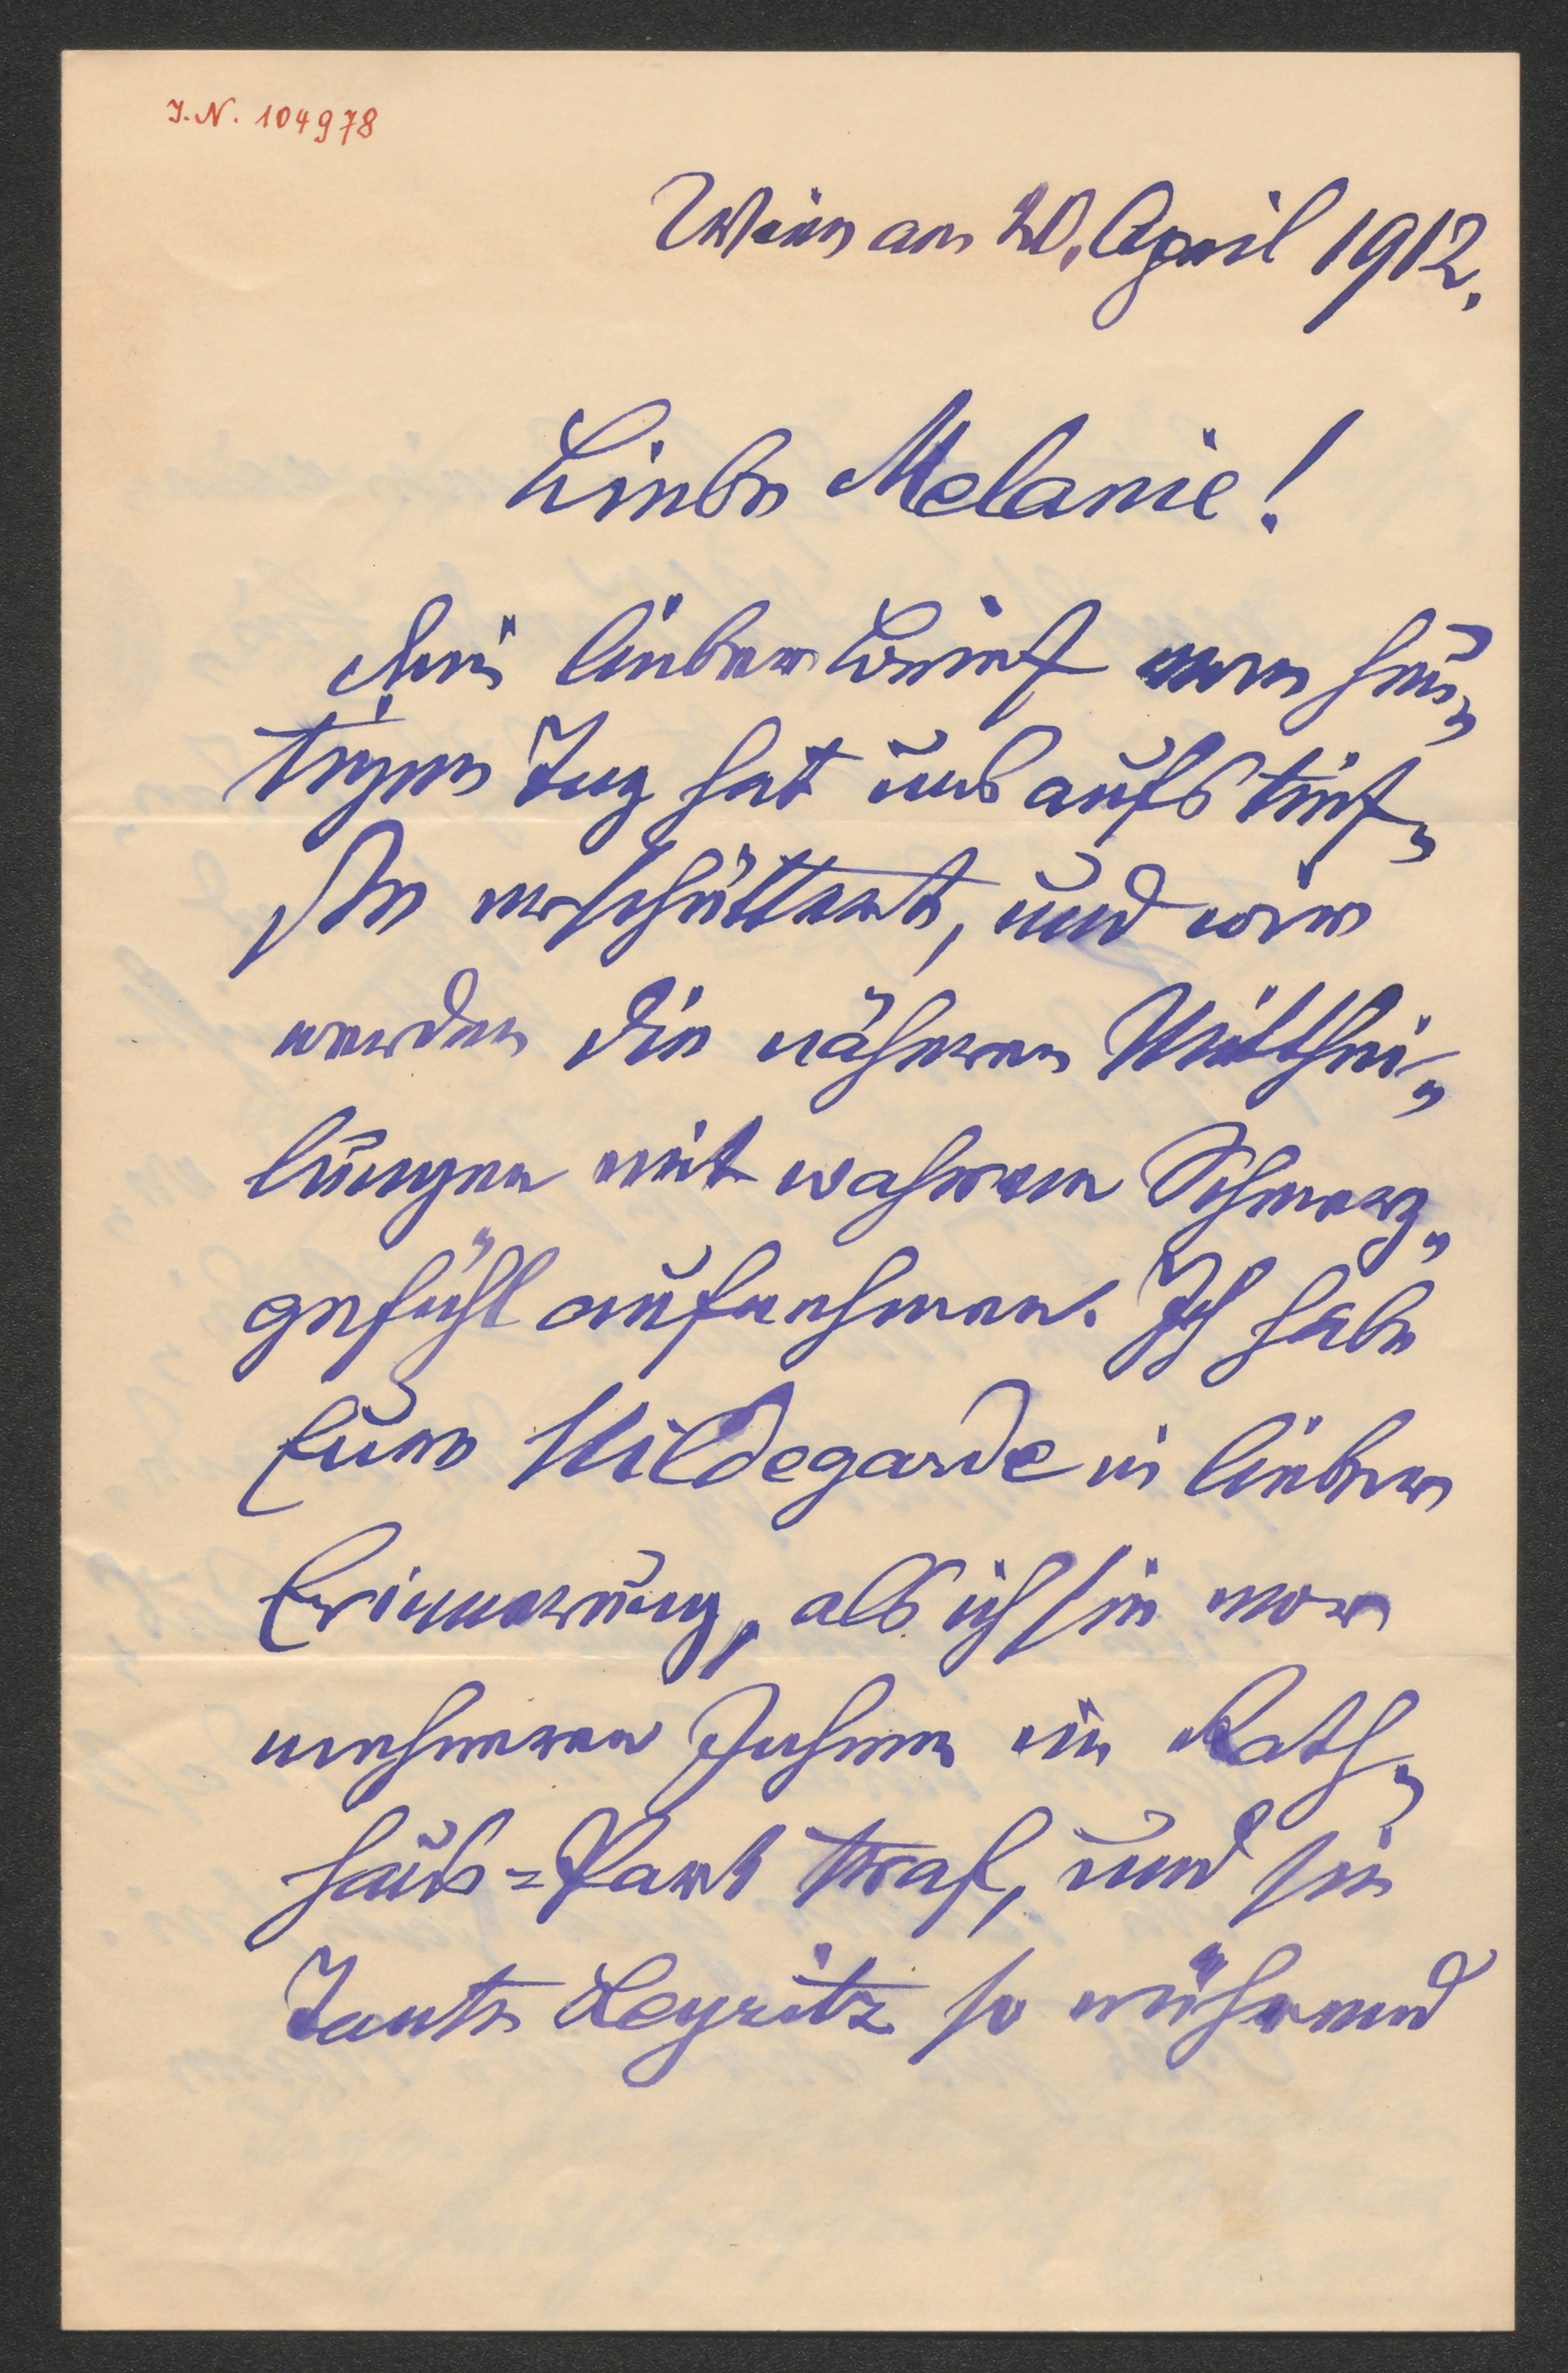 I.N. 104978
Wien am 20. April 1912.
Liebe Melanie!
Dein lieber Brief vom heu„
tigen Tag hat uns aufs tief„
ste erschüttert, und wir
werden die näheren Mitthei„
lungen mit wahrem Schmerz„
gefühl aufnehmen. Ich habe
Eure Hildegarde in lieber
Erinnerung, als ich sie vor
mehreren Jahren im Rath„
haus=Park traf, und sie
Tante Leyritz so während